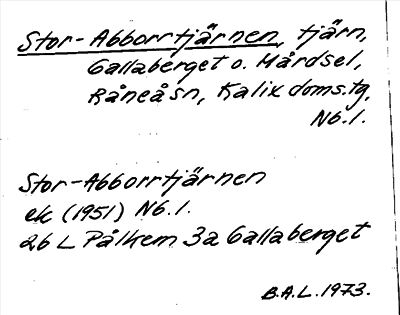 Stor-Abborrtjärnen, tjärn,
Gallaberget o. Mårdsel,
Råneå sn, Kalix doms.tg,
Nb.l.
Stor-Abborrtjärnen
ek (1951) Nb.l.
26 L Pålkem 3a Gallaberget
B.A.L. 1973.